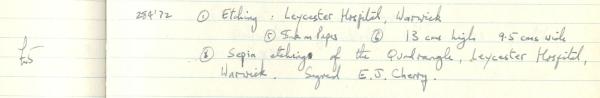 284'72 ① Etching: Leycester Hospital, Warwick
⑤ Ink on Paper ⑥ 13 cms high 9.5 cms wide
£5 ⑧ Sepia etching of the Quadrangle, Leycester Hospital,
Warwick. Signed E.J. Cherry.